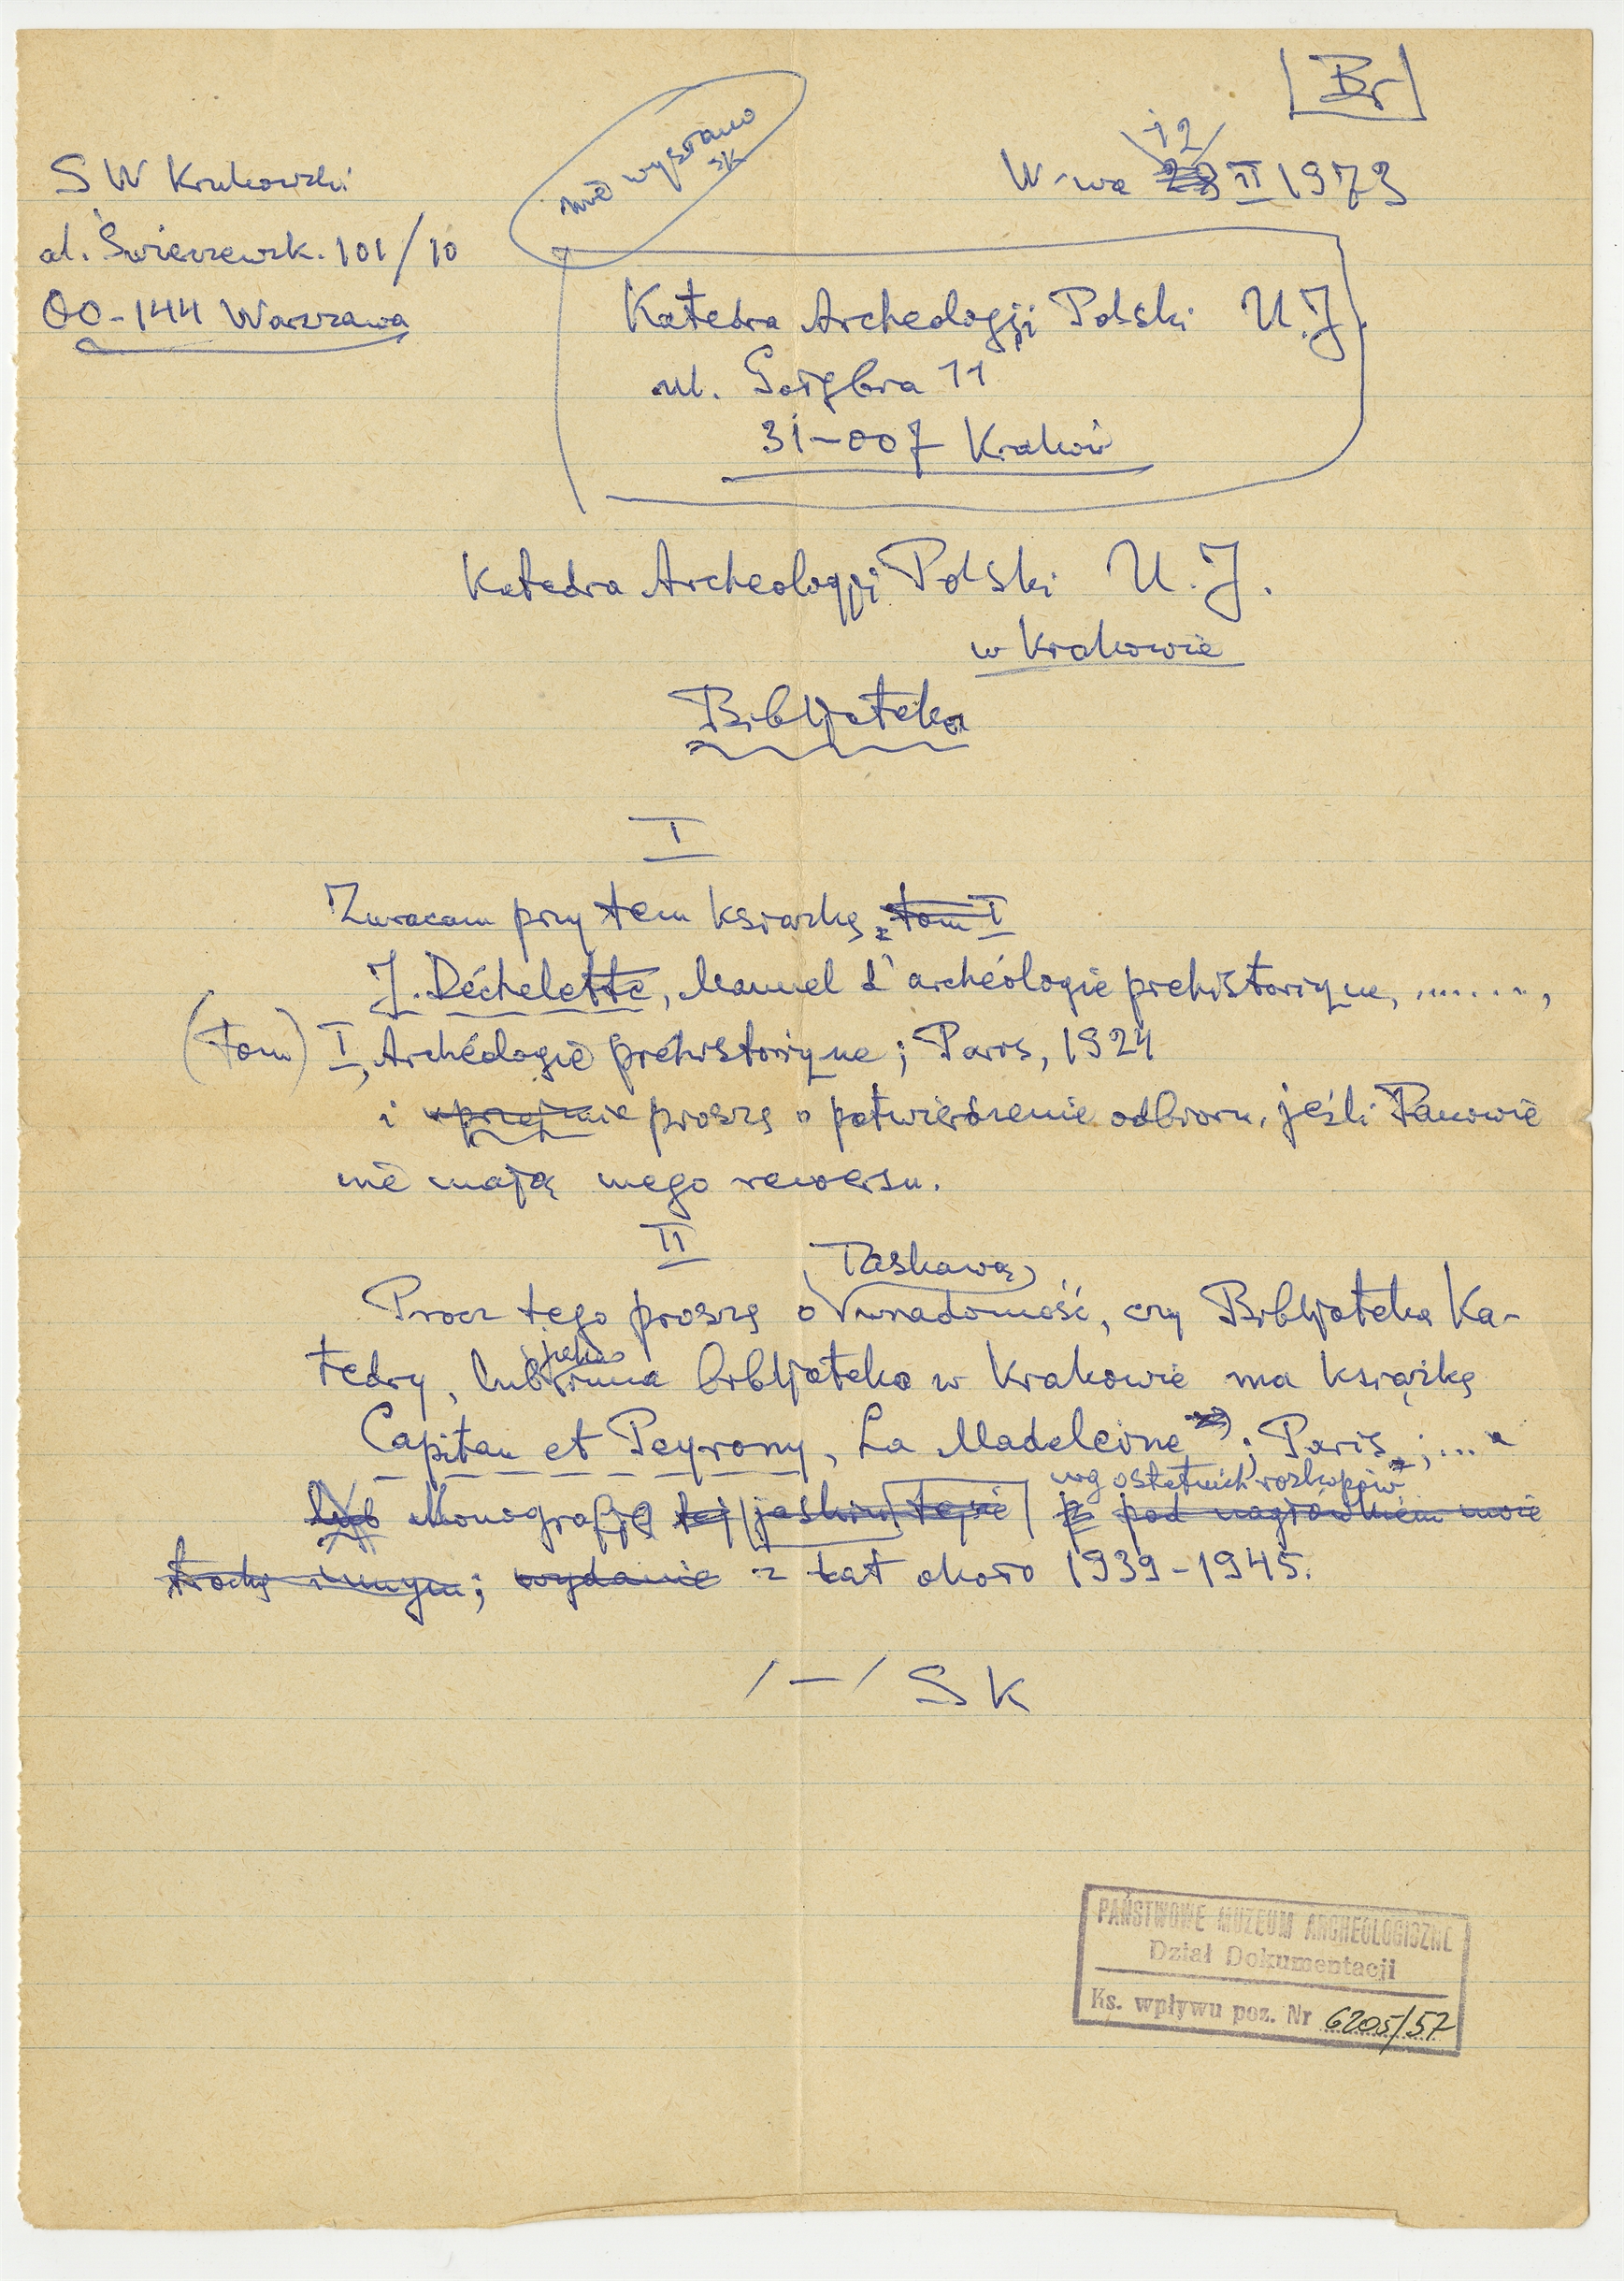 Br
nie wysłano
SK
12
W-wa 23 II 1973
S W Krukowski
al. Świerczewsk. 101/10
00-144 Warszawa
Katedra Archeologji Polski U.J.
ul. Gołębia 11
31-007 Kraków
Katedra Archeologji Polski U.J.
w Krakowie
Bibljoteka
I
Zwracam przy tem książkę tom I
J. Déchelette, Manuel d'archéologie prehistorique, ........,
(tom) I, Archéologie préhistorique; Paris, 1924
i uprzejmie proszę o potwierdzenie odbioru, jeśli Panowie
nie mają mego rewersu.
II
łaskawą
Procz tego proszę o wiadomość, czy Bibljoteka Ka-
jakaś
tedry, lub inna bibljoteka w Krakowie ma książkę
Capitan et Peyrony, La Madeleine; Paris,;...
wg ostatnich rozkopów
lub Monografję tej jaskini pod nagłówkiem może
trochę innym; wydanie z lat około 1939-1945.
/-/ SK
PAŃSTWOWE MUZEUM ARCHEOLOGICZNE
Dział Dokumentacji
Ks. wpływu poz. Nr 6205/57